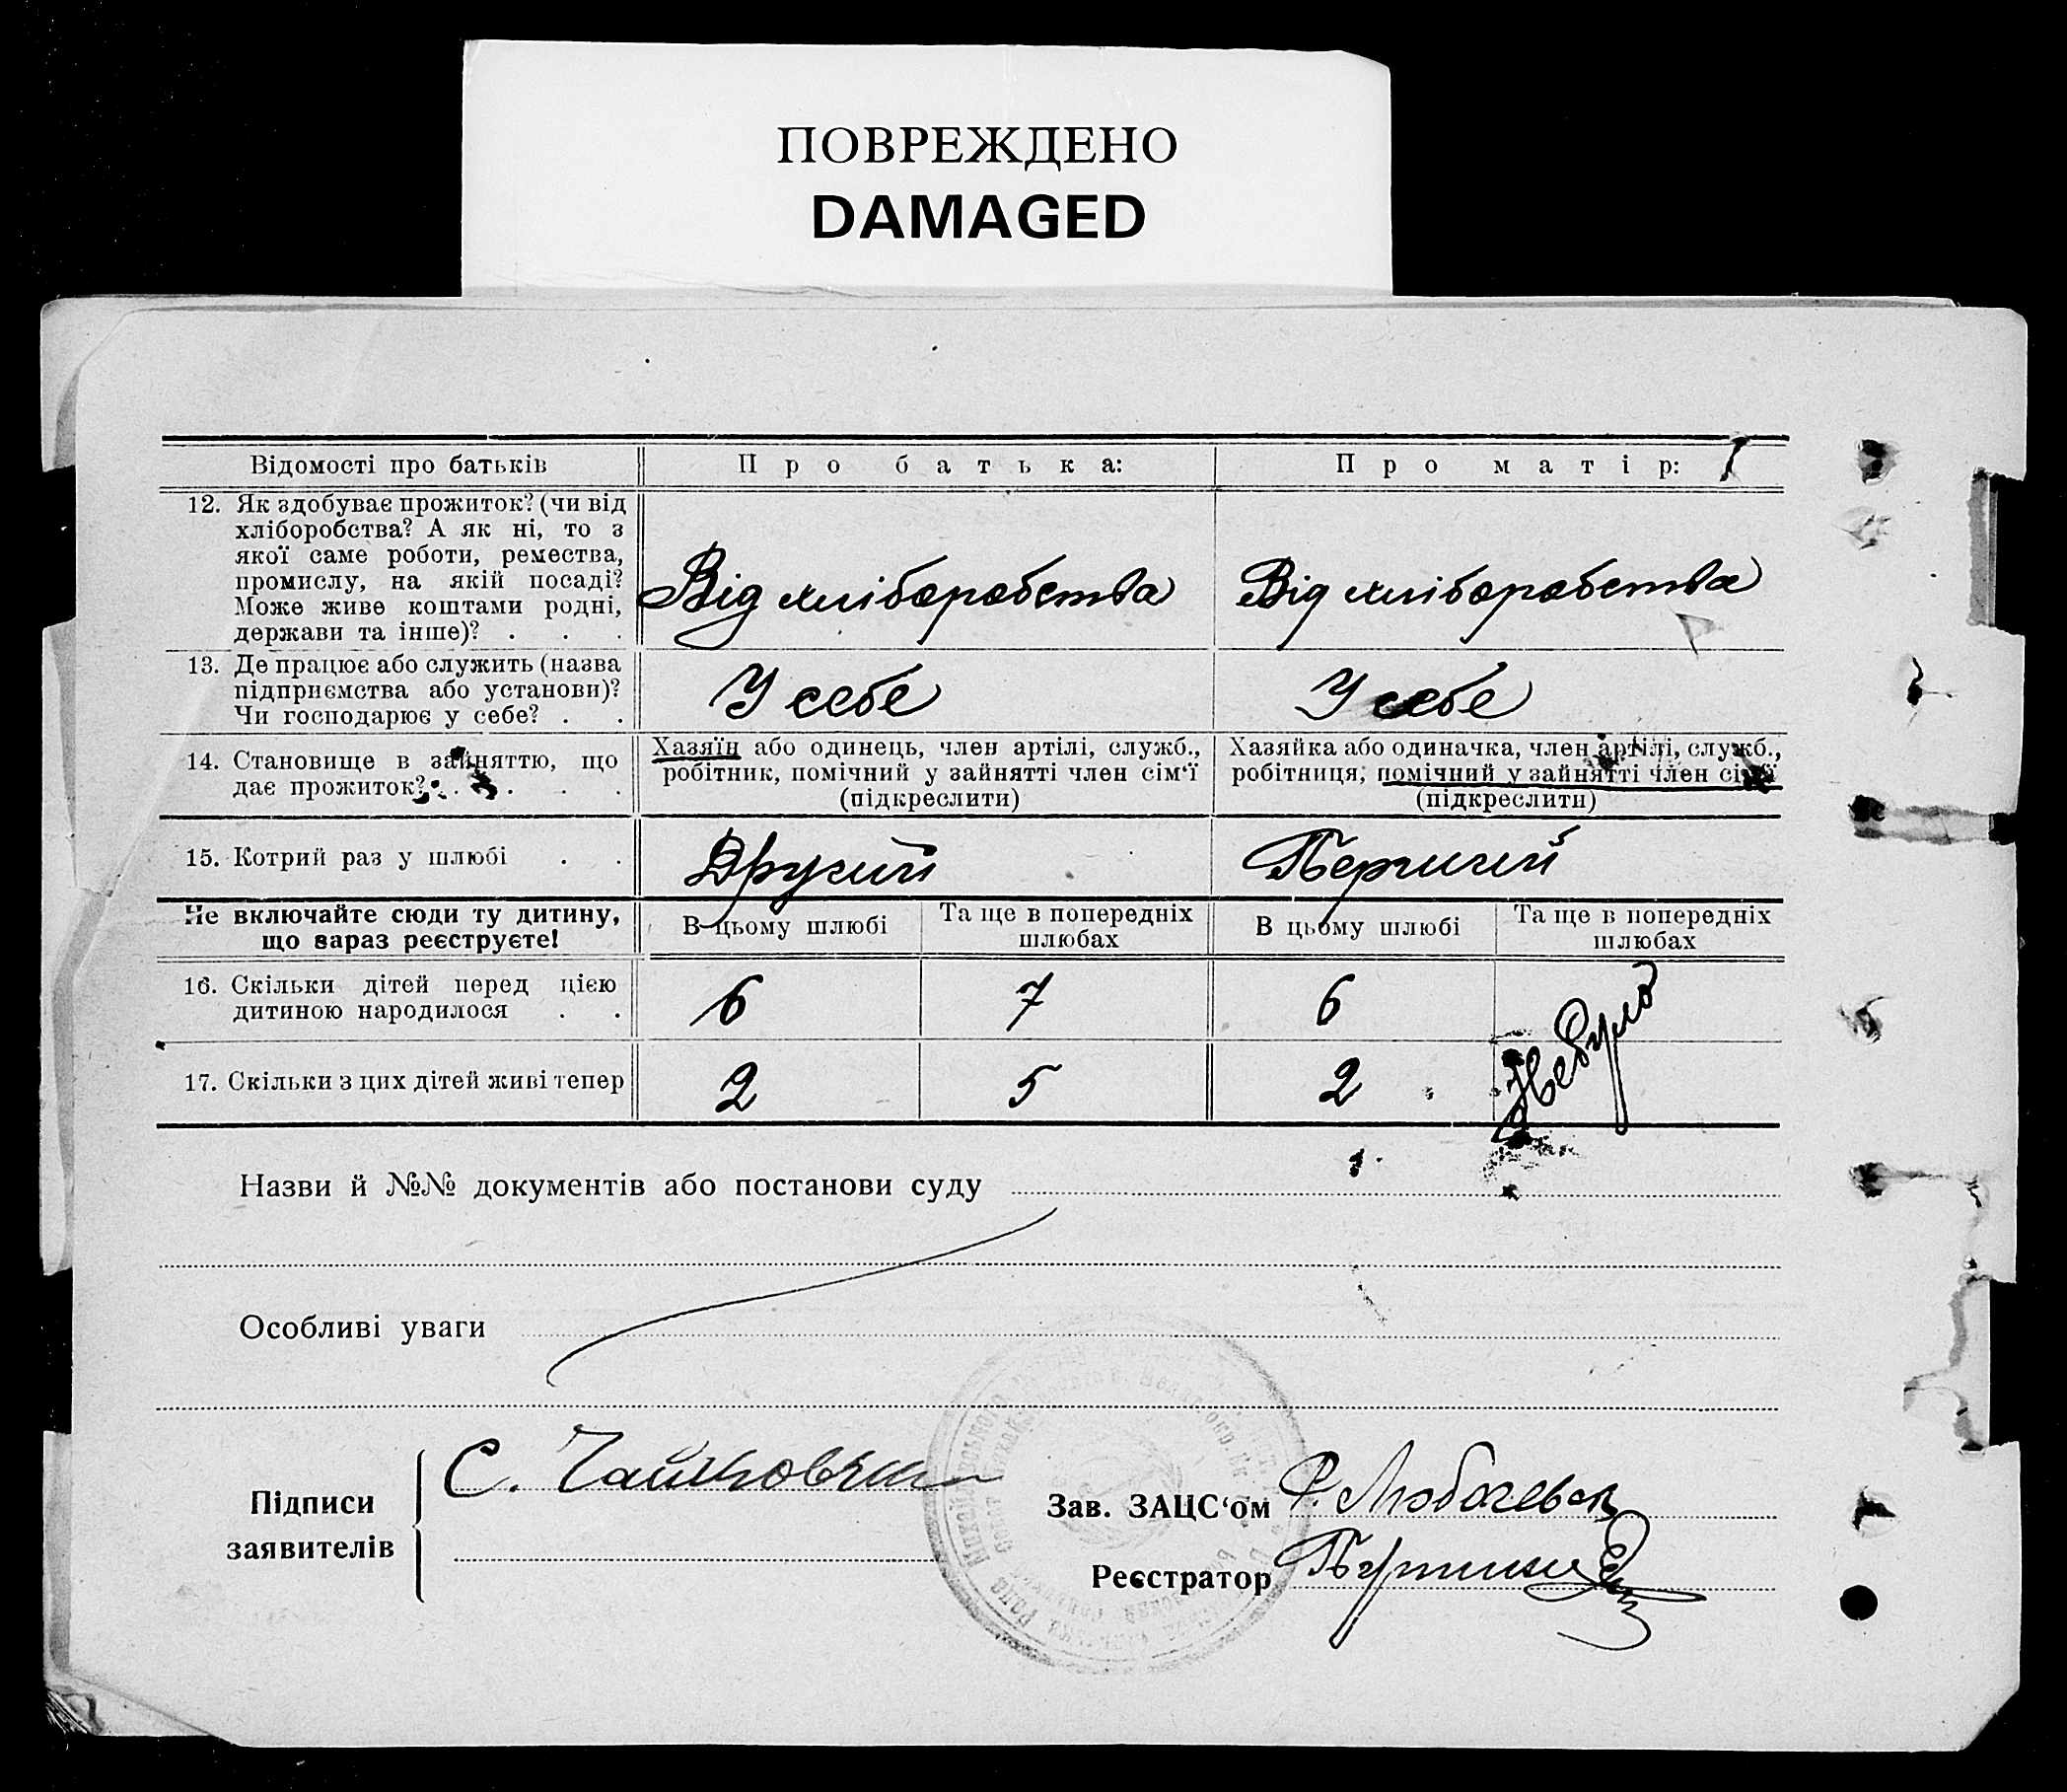 ПОВРЕЖДЕНО
DAMAGED
Відомості про батьків
Про батька:
Про матір:
12. Як здобуває прожиток? (чи від
хліборобства? А як ні, то з
якої саме роботи, ремества,
промислу, на якій посаді?
Може живе коштами родні,
держави та інше)? . . .
Від хліборобства
Від хліборобства
13. Де працює або служить (назва
підприємства або установи)?
Чи господарює у себе? . .
У себе
У себе
14. Становище в зайняттю, що
дає прожиток? . . . . .
Хазяїн або одинець, член артілі, служб.,
робітник, помічний у зайнятті член сім'ї
(підкреслити)
Хазяйка або одиначка, член артілі, служб.,
робітниця, помічний у зайнятті член сім'ї
(підкреслити)
15. Котрий раз у шлюбі . .
Другий
Перший
Не включайте сюди ту дитину,
що зараз реєструєте!
В цьому шлюбі
Та ще в попередніх
шлюбах
В цьому шлюбі
Та ще в попередніх
шлюбах
16. Скільки дітей перед цією
дитиною народилося . .
6
7
6
Небуло
17. Скільки з цих дітей живі тепер
2
5
2
Назви й №№ документів або постанови суду
Особливі уваги
Підписи
заявителів
С.
Зав. ЗАЦС‘ом
Реєстратор